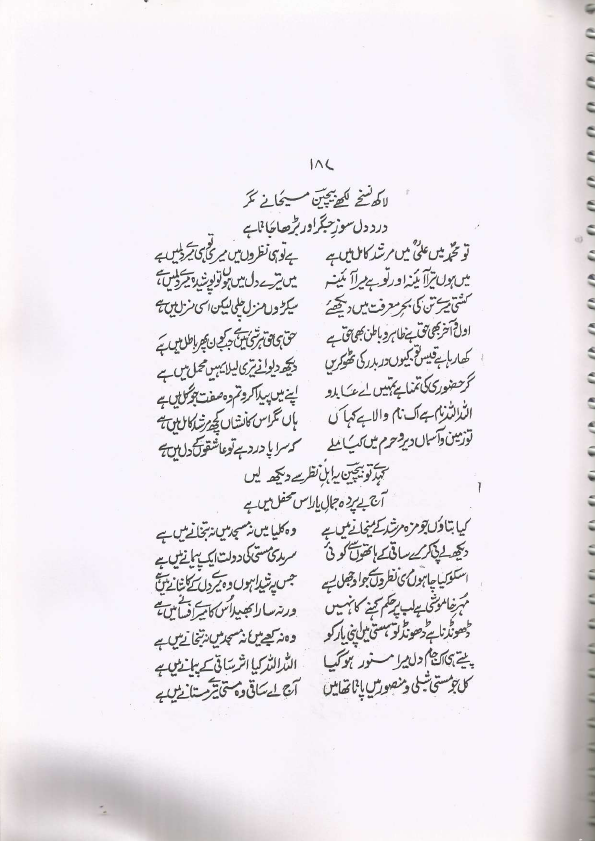 ۱۸۷
لاکھ نسخے لکھے بیچین مسیحا نے مگر
درد دل سوز جگر اور بڑھا جاتا ہے
تو محمدؐ میں علیؓ میں مرشد کامل میں ہے ہے تو ہی نظروں میں میری تو ہی میرے دل میں ہے
میں ہوں تیرا آئینہ اور تو ہے میرا آئینہ میں ترے دل میں ہوں تو پوشیدہ میرے دل میں ہے
کشتی میرے تن کی بحر معرفت میں دیکھئے سیکڑوں منزل چلی لیکن اسی منزل میں ہے
اول و آخر بھی حق ہے ظاہر و باطن بھی حق ہے حق ہی حق ہر شئی میں ہے جب کون پھر باطل میں ہے
کھا رہا ہے قیس تو کیوں در بدر کی ٹھوکریں دیکھ دیوانے تری لیلا یہیں محمل میں ہے
گر حضوری کی تمنا ہے تمہیں اے عابدو اپنے میں پیدا کرو تم وہ صفت جو گل میں ہے
اللہ اللہ نام ہے اک نام والا ہے کہاں ہاں مگر اس کا نشاں کچھ مرشد کامل میں ہے
تو زمین و آسماں دیر و حرم میں کیا ملے کہ سراپا درد ہے تو عاشقوں کے دل میں ہے
کہدے تو بیچین یہ اہل نظر سے دیکھ لیں
آج بے پردہ جمال یار اس محفل میں ہے
کیا بتاؤں جو مزہ مرشد کے میخانے میں ہے وہ کلیسا میں نہ مسجد میں نہ بتخانے میں ہے
دیکھ لے پی کر مرے ساقی کے ہاتھوں سے کوئی سرمدی مستی کی دولت ایک پیمانے میں ہے
اسکو کیا چاہوں مری نظروں سے جو اوجھل رہے جس پر شیدا ہوں وہ میرے دل کے کاشانے میں ہے
مہر خاموشی ہے لب پر حکم کہنے کا نہیں ورنہ سارا بھید اُس کا میرے افسانے میں ہے
ڈھونڈنا ہے ڈھونڈ تو ہستی میں اپنی یار کو وہ نہ کعبے میں نہ مسجد میں نہ بتخانے میں ہے
پیتے ہی اک جام دل میرا منور ہو گیا اللہ اللہ کیا اثر ساقی کے پیمانے میں ہے
کل جو مستی شبلی و منصور میں پاتا تھا میں آج اے ساقی وہ مستی تیرے مستانے میں ہے